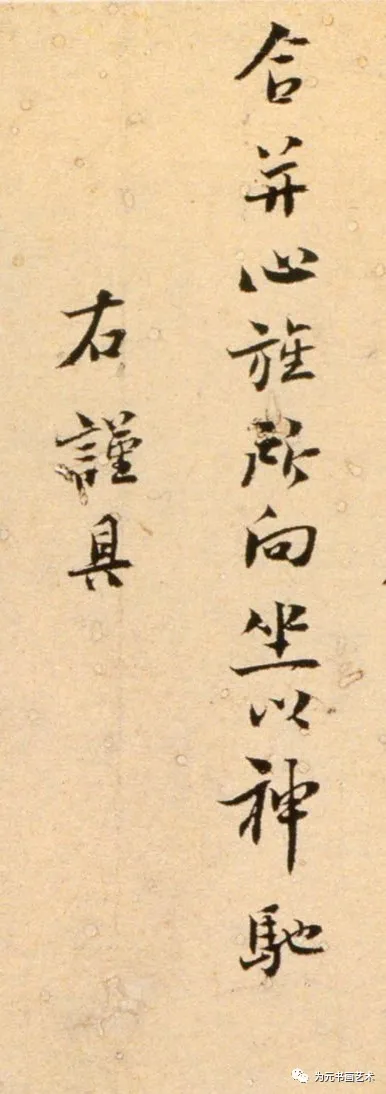 合并心旌所向坐以神馳
右謹具
为元书画艺术